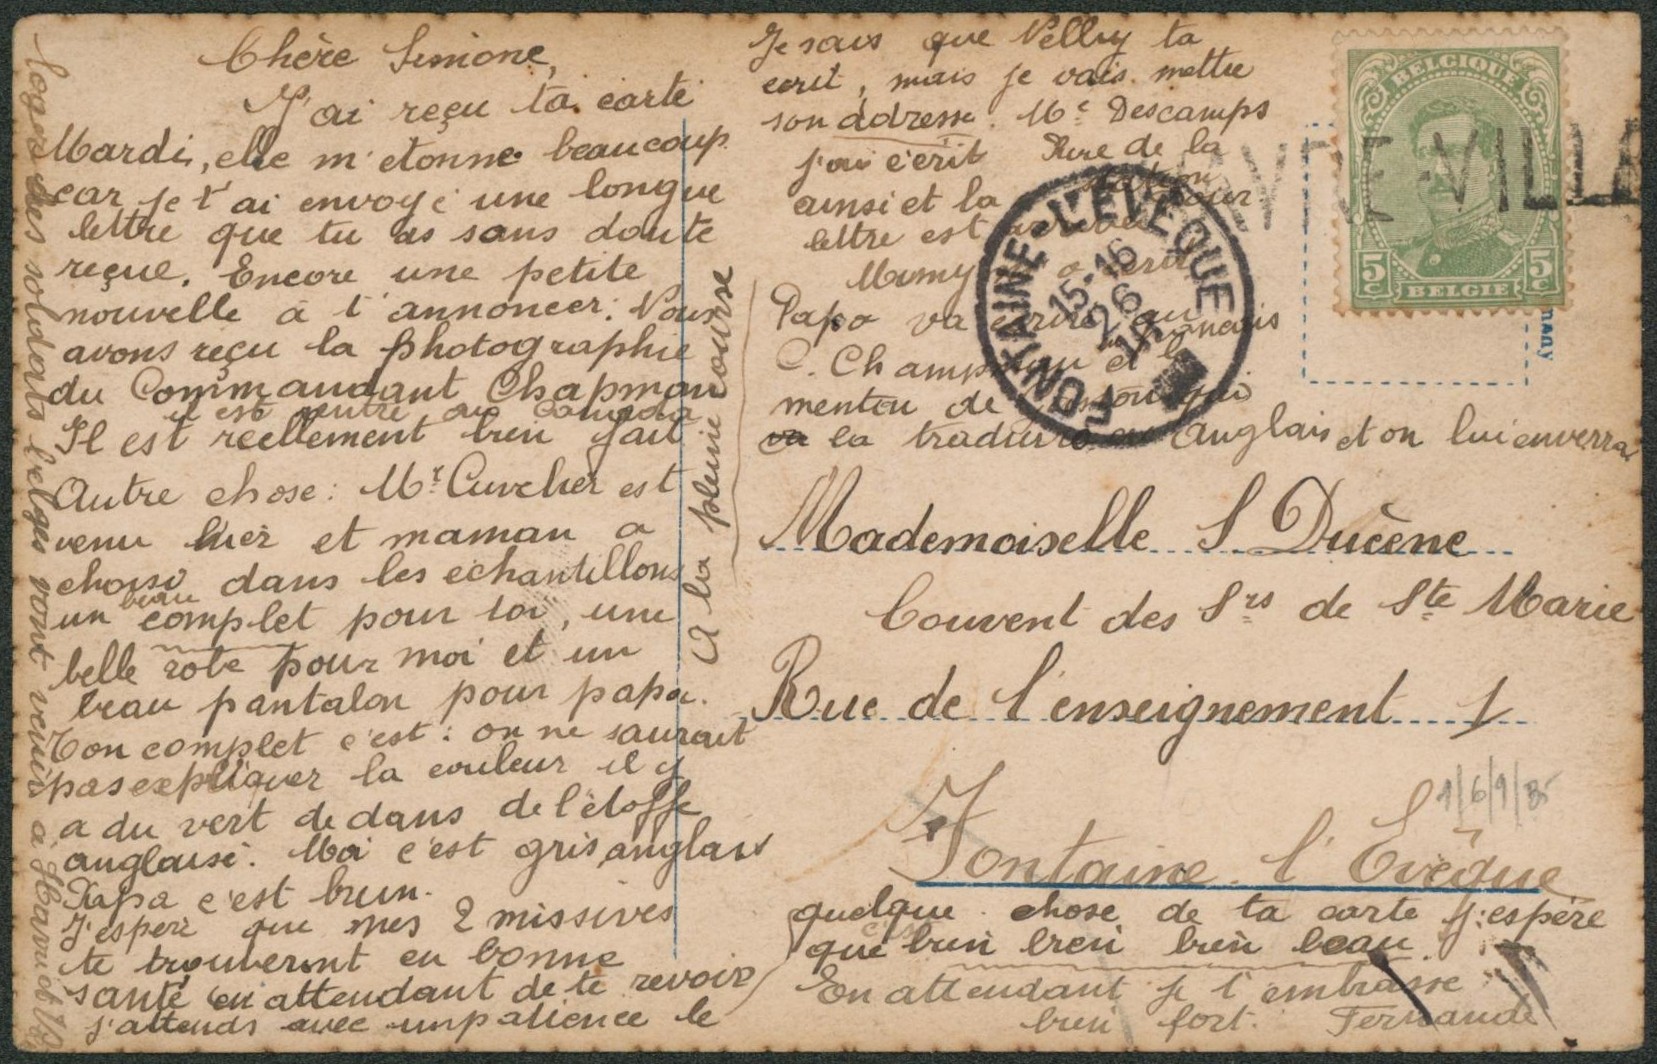 Chère Simone,
J'ai reçu ta carte
Mardi, elle m'etonne beaucoup
car je t'ai envoyé une longue
lettre que tu as sans doute
reçue. Encore une petite
nouvelle à t'annoncer: Nous
avons reçu la photographie
du Commandant Chapman
il est rentré au Canada
Il est réellement bien fait
Autre chose: Mr Cuvelier est
venu hier et maman a
choisi dans les échantillons
un beau complet pour toi, une
belle robe pour moi et un
beau pantalon pour papa.
Ton complet c'est: on ne saurait
pas expliquer la couleur il y
a du vert dedans de l'étoffe
anglaise. Moi c'est gris anglais
Papa c'est brun.
J'espère que mes 2 missives
te trouveront en bonne
santé en attendant de te revoir
j'attends avec impatience le
loger des soldats belges vont venir à
A la pleine course
Je sais que Nelly ta
ecrit, mais je vais mettre
son addresse. Mr Descamps
j'ai écrit Rue de la
station
ainsi et la
lettre est
Mamy a
Papa va
C. Chapman et
menton de qui
la traduira en Anglais et on lui enverra
Mademoiselle S Ducène
Couvent des Srs de Ste Marie
Rue de l'enseignement 1
Fontaine l'Evêque
quelque chose de ta carte j'espère
que bien bien bien beau.
En attendant je t'embrasse
bien fort. Fernande
BELGIQUE
5c 5c
BELGIE
FONTAINE-L'EVEQUE
15-16
26